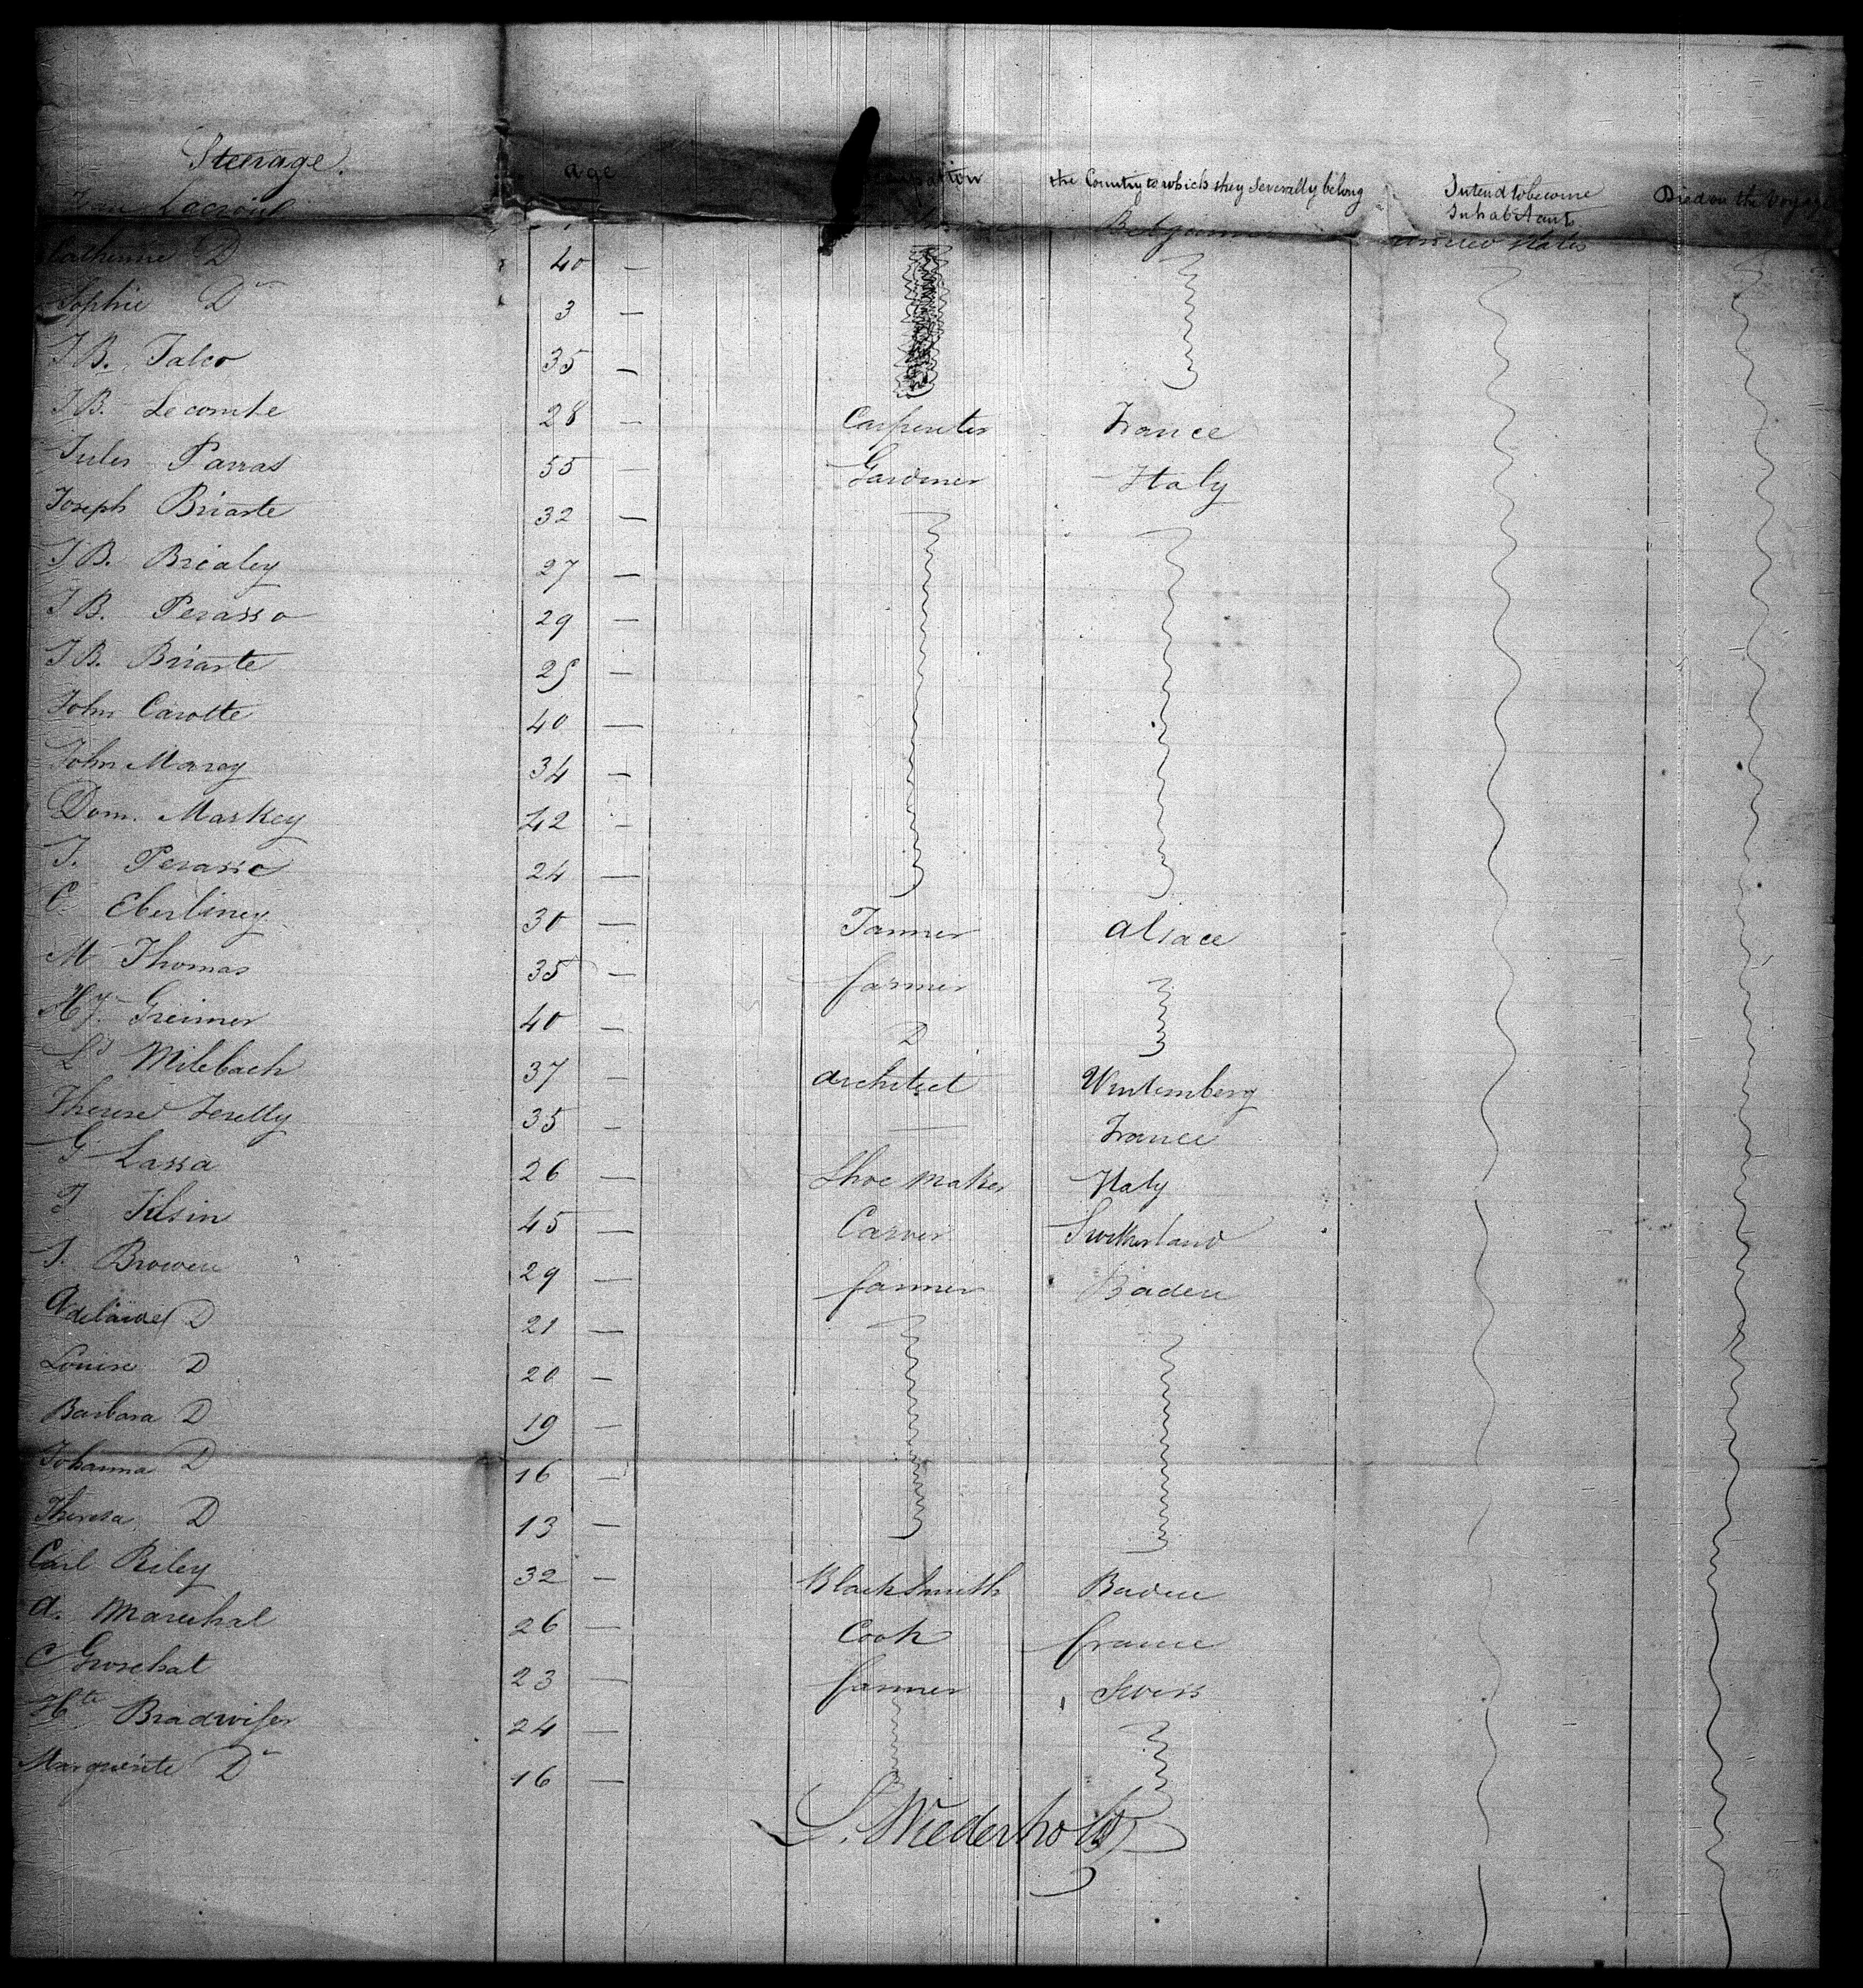 Steerage.
age
Occupation
the Country to which they severally belong
Intend to become Inhabitants
Died on the Voyage
Lacroix Belgium United States
Catherine D 40 —
Sophie Do 3 —
J B. Talco 35 —
J B. Lecomte 28 — Carpenter France
Jules Parras 55 — Gardiner Italy
Joseph Briarte 32 —
J B. Brialey 27 —
J B. Perasso 29 —
J B. Briarte 25 —
John Carotte 40 —
John Marey 34 —
Dom. Markey 42 —
J. Perasso 24 —
C. Eberliney 30 — Tanner Alsace
M Thomas 35 — farmer
Hy. Greimer 40 — D
Ls Milebach 37 — architect Wurtemberg
Therese 35 — — France
G Lassa 26 — Shoe maker Italy
45 — Carver Switherland
J. Browen 29 — farmer Baden
Adelaide D 21 —
Louise D 20 —
Barbara D 19 —
Johanna D 16 —
Theresa D 13 —
Carl Riley 32 — Blacksmith Baden
A. Marechal 26 — Cook france
C Groschat 23 — farmer Swiss
Hte Bradwifer 24 —
Marguerite Do 16 —
L. Wiederhold